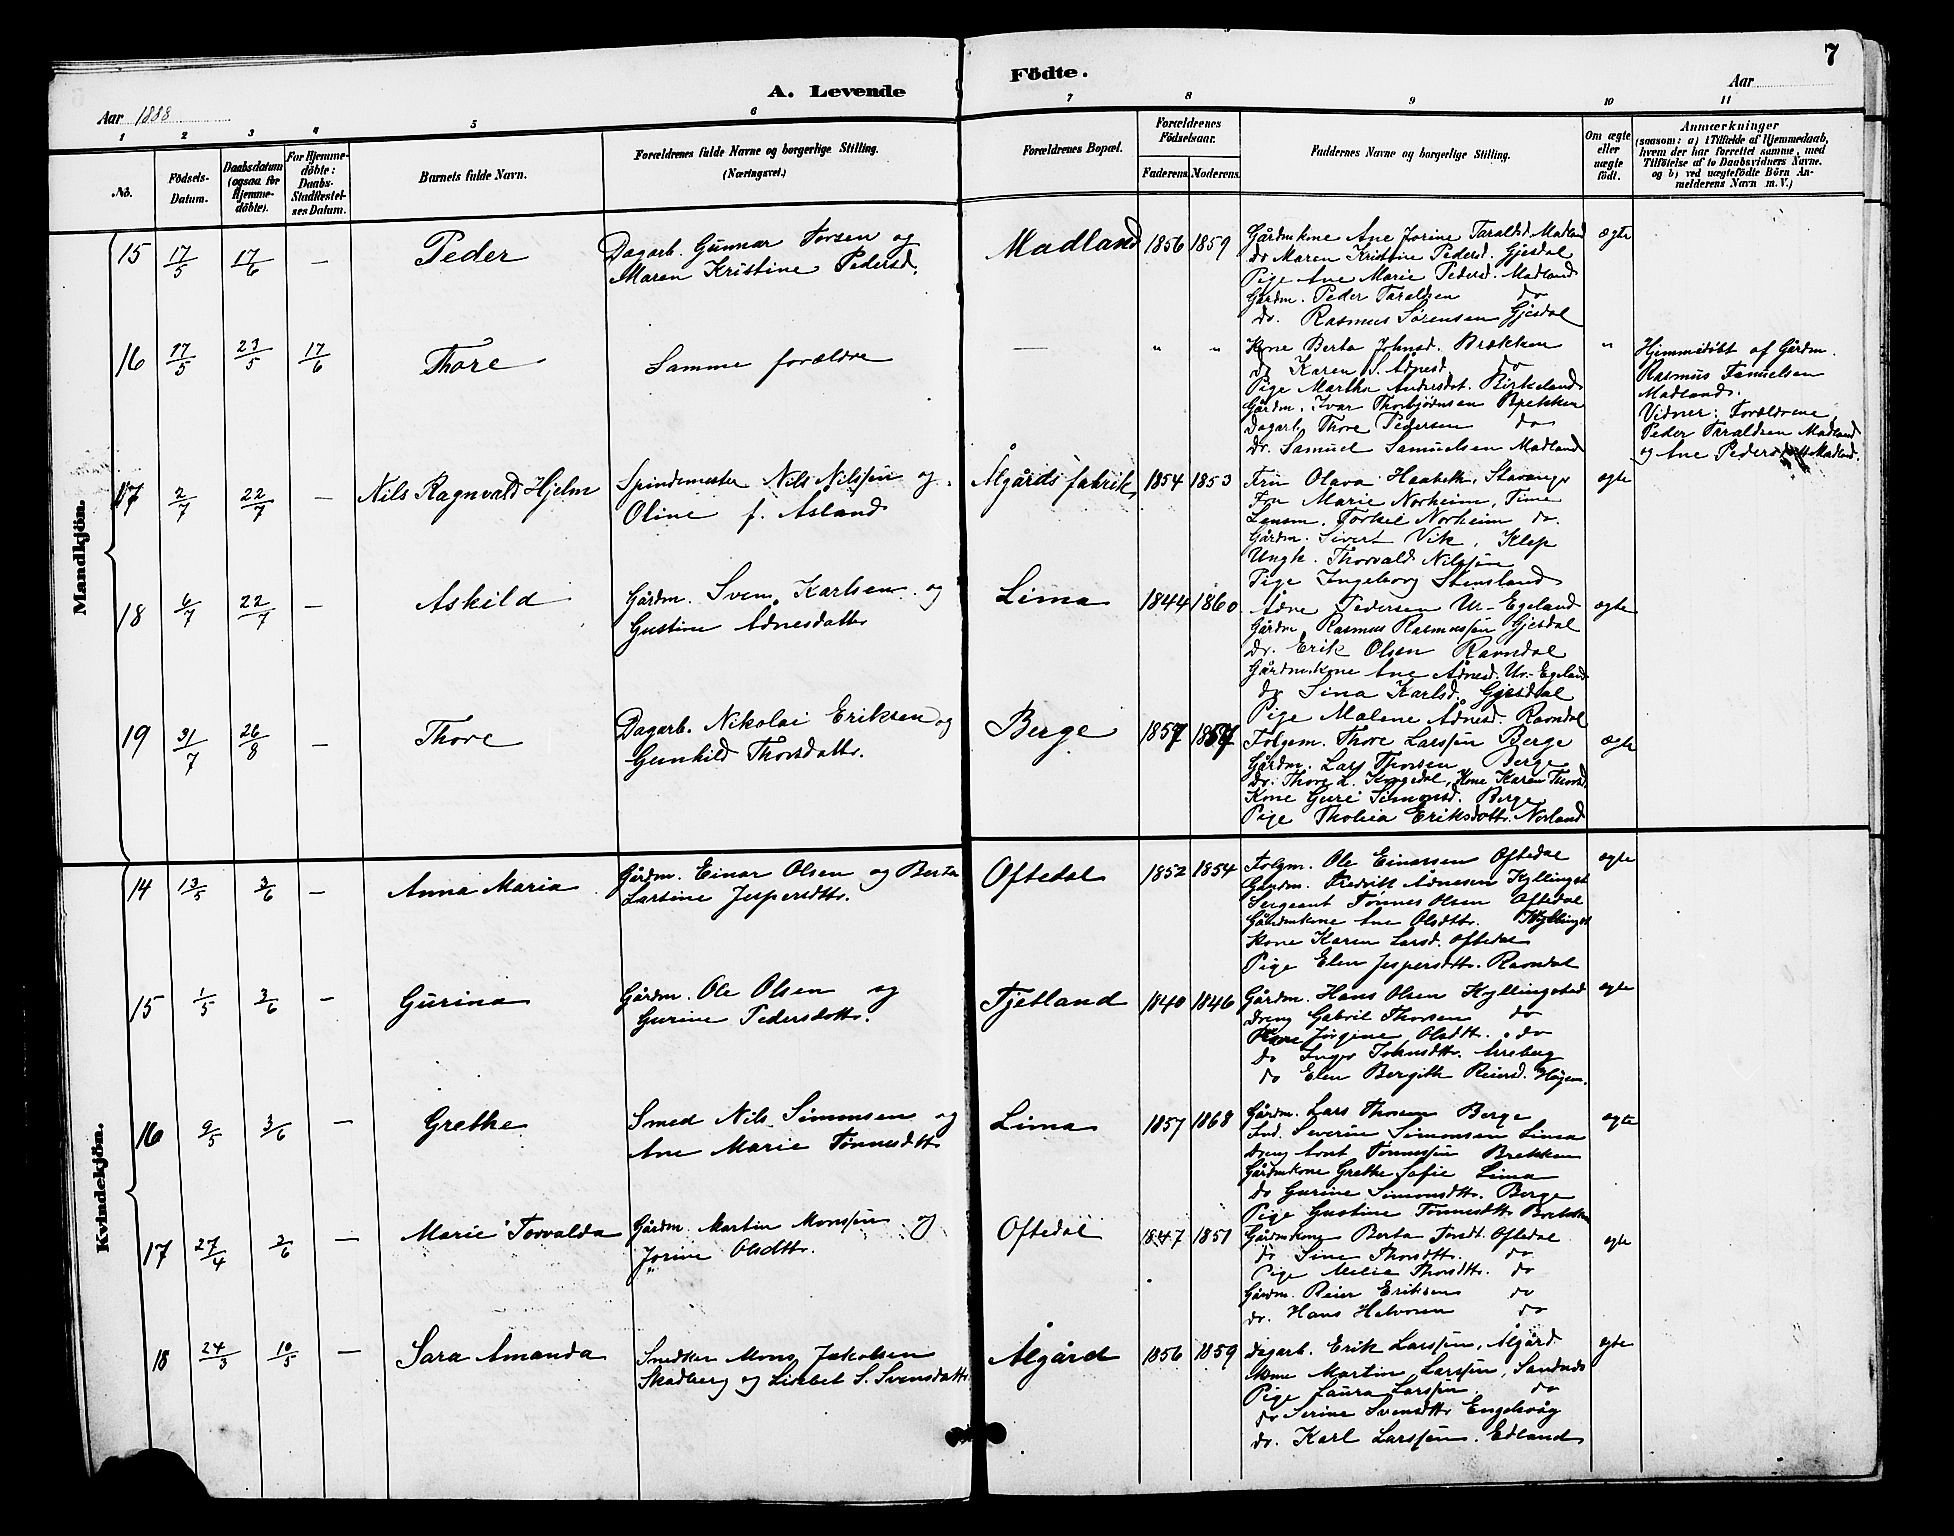 7
A. Levende Födte.
Aar 1888
Aar
1 2 3 4 5 6 7 8 9 10 11
No.
Födsels-
Datum.
Daabsdatum
(ogsaa for
Hjemme-
döbte).
For Hjemme-
döbte:
Daabs-
Stadfæstel-
ses Datum.
Barnets fulde Navn.
Forældrenes fulde Navne og borgerlige Stilling.
(Næringsvei.)
Forældrenes Bopæl.
Forældrenes
Födselsaar.
Faderens. Moderens.
Faddernes Navne og borgerlige Stilling.
Om ægte
eller
uægte
födt.
Anmærkninger
(saasom: a) i Tilfælde af Hjemmedaab,
hvem der har forrettet samme, med
Tilföielse af to Daabsvidners Navne,
og b) ved uægtefödte Börn An-
melderens Navn m. V.)
Mandkjön.
15 17/5 17/6 — Peder
Dagarb. Gunnar Torsen og
Maren Kristine Pedersd.
Madland 1856 1859
Gårdmkone Ane Jorine Taraldsd. Madland
do Maren Kristine Pedersd. Gjesdal
Pige Ane Marie Pedersd. Madland
Gårdm. Peder Taraldsen do
do. Rasmus Sørensen Gjesdal
ægte
16 17/5 23/5 17/6 Thore
Samme forældre
— " "
Kone Berta Johnsd. Brækken
do Karen S. Ådnesd. do
Pige Marthe Andersdat. Birkeland
Gårdm. Ivar Thorbjørnsen Brekken
Dagarb. Thore Pedersen do
do. Samuel Samuelsen Madland
"
Hjemmedøbt af Gårdm.
Rasmus Samuelsen
Madland.
Vidner: Forældrene
Peder Taraldsen Madland
og Ane Pedersd. Madland.
17 2/7 22/7 — Nils Ragnvald Hjelm
Spindemester Nils Nilssen og
Oline f. Asland
Ålgårds fabrik 1854 1853
Fru Olava Haabeth, Stavanger
Fru Marie Norheim, Time
Lensm. Torkel Norheim do.
Gårdm. Sivert Vik, Klep
Ungk. Thorvald Nilssen
Pige Ingeborg Stensland
ægte
18 6/7 22/7 — Askild
Gårdm. Sven Karlsen og
Gustine Ådnesdattr
Lima 1844 1860
Ådne Pedersen Ur-Egeland
Gårdm. Rasmus Rasmussen Gjesdal
do. Erik Olsen Ravndal
Gårdm.kone Ane Ådnesd. Ur-Egeland
do Sina Karlsd. Gjesdal
Pige Malene Ådnesd. Ravndal
ægte
19 31/7 26/8 — Thore
Dagarb. Nikolai Eriksen og
Gunhild Thorsdattr.
Berge 1857 1857
Folgem. Thore Larssen Berge
Gårdm. Lars Thorsen Berge
do. Thore L. Kongedal, Kone Karen Thorsd.
Kone Guri Simonsd. Berge
Pige Tholia Eriksdattr. Norland
ægte
Kvindekjön.
14 13/5 3/6 — Anna Maria
Gårdm. Einar Olsen og Berta
Lartine Jespersdttr.
Oftedal 1852 1854
Folgm. Ole Einarsen Oftedal
Gårdm. Fredrik Ådnesen Kyllingst.
Sergeant Tønnes Olsen Oftedal
Gårdmkone Ane Olsdttr. Kyllingst
Kone Karen Larsd. Oftedal
Pige Elen Jespersdttr. Ravndal
ægte
15 1/5 3/6 — Gurina
Gårdm. Ole Olsen og
Gurine Pedersdattr.
Tjetland 1840 1846
Gårdm. Hans Olsen Kyllingsted
Dreng Gabril Thorsen do
Kone Jørgine Olsdtt. do
do Inger Johnsdttr. Arreberg
do Elen Bergith Reiersd.
ægte
16 9/5 3/6 — Grethe
Smed Nils Simonsen og
Ane Marie Tønnesdttr
Lima 1857 1868
Gårdm. Lars Thorsen Berge
Ind. Severin Simonsen Lima
Dreng Aont Tønnessen Brekken
Gårdmkone Grethe Sofie Lima
do Gurine Simonsdttr. Berge
Pige Gustine Tønnesdttr. Brekken
ægte
17 27/4 3/6 — Marie Torvalda
Gårdm. Martin Monssen og
Jorine Olsdttr.
Oftedal 1847 1851
Gårdmkone Berta Torsdt. Oftedal
do Sine Thorsdttr. do
Pige Melie Thorsdttr. do
Gårdm. Reier Eriksen do
do. Hans Helvorsen do
egte
18 24/3 10/5 — Sara Amanda
Snedker Mons Jakobsen
Skadberg og Lisebet S. Svensdattr
Ålgård 1856 1859
Dagarb. Erik Larssen, Ålgård
Kone Martin Larssen, Sandnes
Pige Laura Larssen do
do Serine Svensdttr Engelsvåg
do. Karl Larssen. Edland
ægte